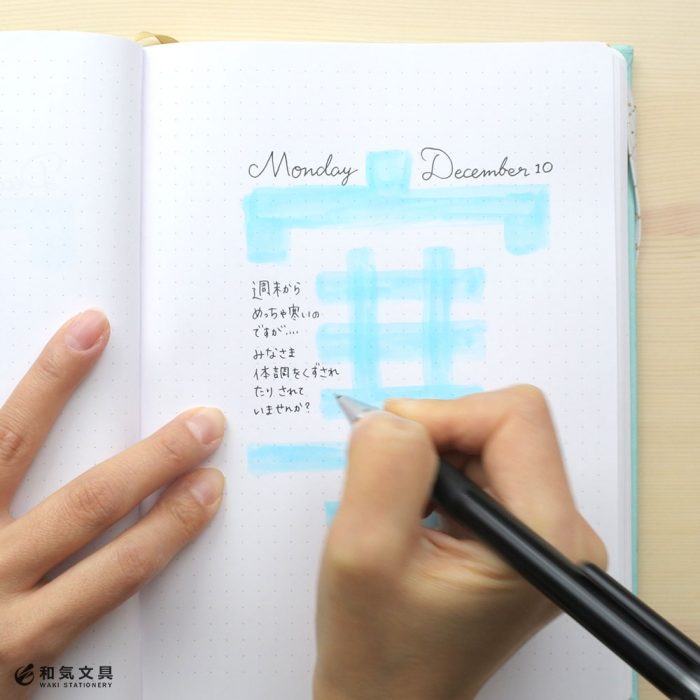 Monday December 10
寒
週末から
めっちゃ寒いの
ですが....
みなさま
体調をくずされ
たりされて
いませんか?
和気文具
WAKI STATIONERY